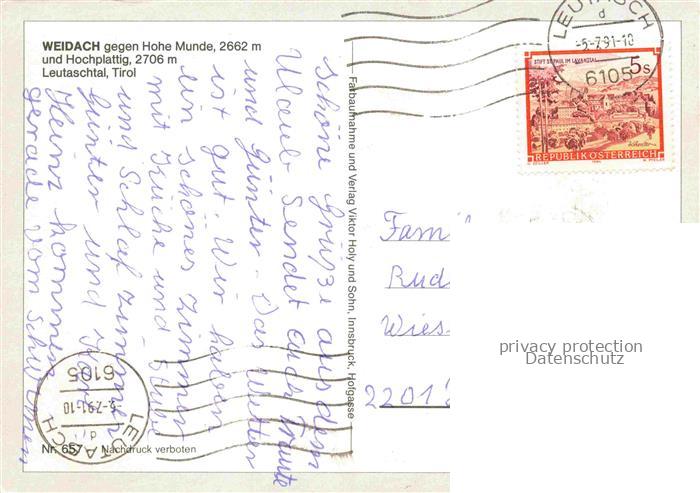 WEIDACH gegen Hohe Munde, 2662 m
und Hochplattig, 2706 m
Leutaschtal, Tirol
schöne Grüße aus dem
Urlaub Sendet euch Traute
und Günter. Das wetter
ist gut. Wir haben
ein schönes zimmer
mit Küche und Stube
und Schlafzimmer
Günter und
Heinz kommen
gerade vom schwimmen
Nr. 657
Nachdruck verboten
Farbaufnahme und Verlag Viktor Holy und Sohn, Innsbruck, Hofgasse
LEUTASCH
d
-5-7.91-10
6105
STIFT ST. PAUL IM LAVANTTAL
5s
REPUBLIK ÖSTERREICH
Fami
Rud
Wies
2201
privacy protection
Datenschutz
LEUTASCH
6105